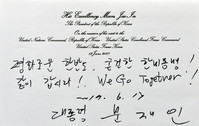 His Excellency Moon Jae-In
The President of the Republic of Korea
On the occasion of his visit to the
United Nations Command, Republic of Korea - United States Combined Forces Command
United States Forces Korea
13 June 2017
평화로운 한반도, 굳건한 한미동맹!
같이 갑시다! We Go Together!
2017. 6. 13
대통령 문재인